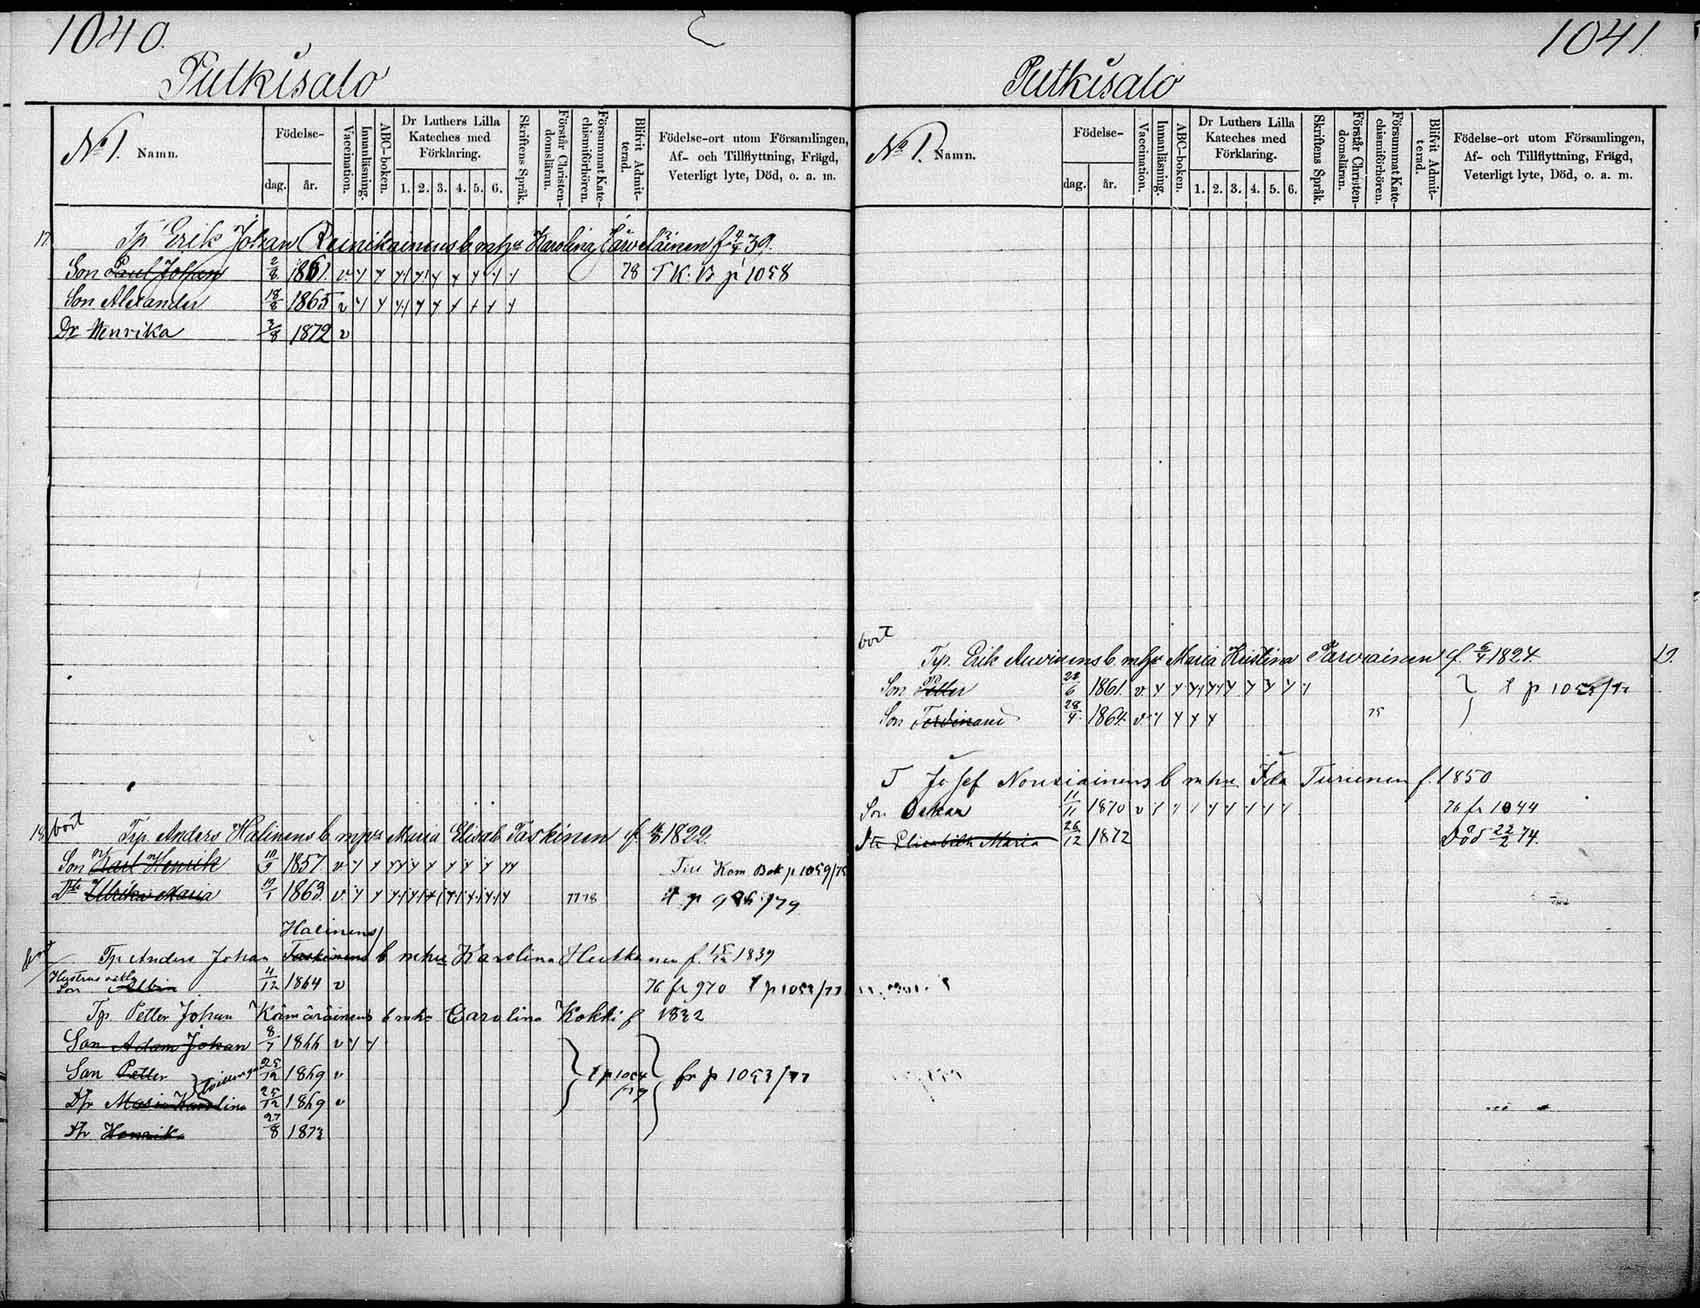 1040.
Putkisalo
No 1. Namn.
Födelse-
dag. år.
Vaccination.
Innanläsning.
ABC-boken.
Dr Luthers Lilla Kateches med Förklaring.
1. 2. 3. 4. 5. 6.
Skriftens Språk.
Förstår Christendomsläran.
Försummat Katechismiförhören.
Blifvit Admitterad.
Födelse-ort utom Församlingen, Af- och Tillflyttning, Frägd, Veterligt lyte, Död, o. a. m.
17 Tp Erik Johan Reinikainens b m hu Karolina f 39.
Son Paul Johan 2/8 1861. v 78 T K. B p 1058
Son Alexander 18/8 1865 v
Dr Henrika 3/8 1872 v
18 bort Trp. Anders Halinens b m hu Maria Elisab Taskinen f. 1822.
Son Karl Henrik 1857 v Till Kom Bok p 1059/78
Dtr Ulrika Maria 1863 v 77 78 t p 926/79
Halinens
bort Tp Anders Johan Taskinens b m hu Karolina f. 1839
Hustrus Son Albin 11/12 1864 v 76 fr 970 t p 1053/77
Tp. Petter Johan Kämäräinens b m hu Carolina Kokki f 1832
Son Adam Johan 8/7 1866 v
Son Petter tvillingar 25/12 1869 v t p 1054/79 fr p 1053/77
Dr Maria Karolina 25/12 1869 v
Dr Henrika 27/8 1873
1041
Putkisalo
No 1. Namn.
Födelse-
dag. år.
Vaccination.
Innanläsning.
ABC-boken.
Dr Luthers Lilla Kateches med Förklaring.
1. 2. 3. 4. 5. 6.
Skriftens Språk.
Förstår Christendomsläran.
Försummat Katechismiförhören.
Blifvit Admitterad.
Födelse-ort utom Församlingen, Af- och Tillflyttning, Frägd, Veterligt lyte, Död, o. a. m.
bort
Trp. Erik Auvinens b m hu Maria Kristina Parviainen f. 1824. 19.
Son Petter 1861 v t p
Son Ferdinand 28/4 1864 v 75
T Josef Nousiainens b m hu Ida Turunen f. 1850
Son Oskar 11/11 1870 v 76 fr 1044
Dtr Elisabeth Maria 26/12 1872 Död 22/2 74.